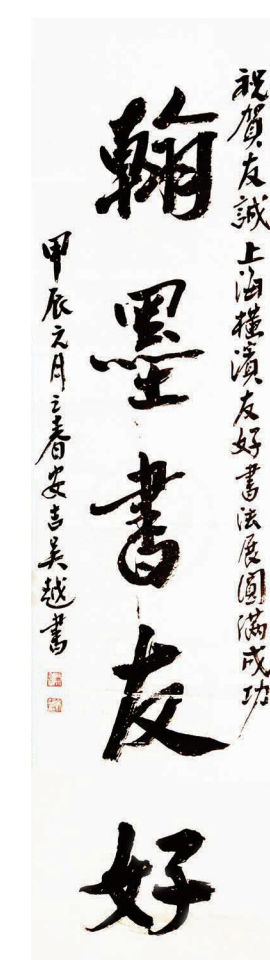 祝賀友誠上海橫濱友好書法展圓滿成功
翰墨書友好
甲辰元月之春安吉吳越書